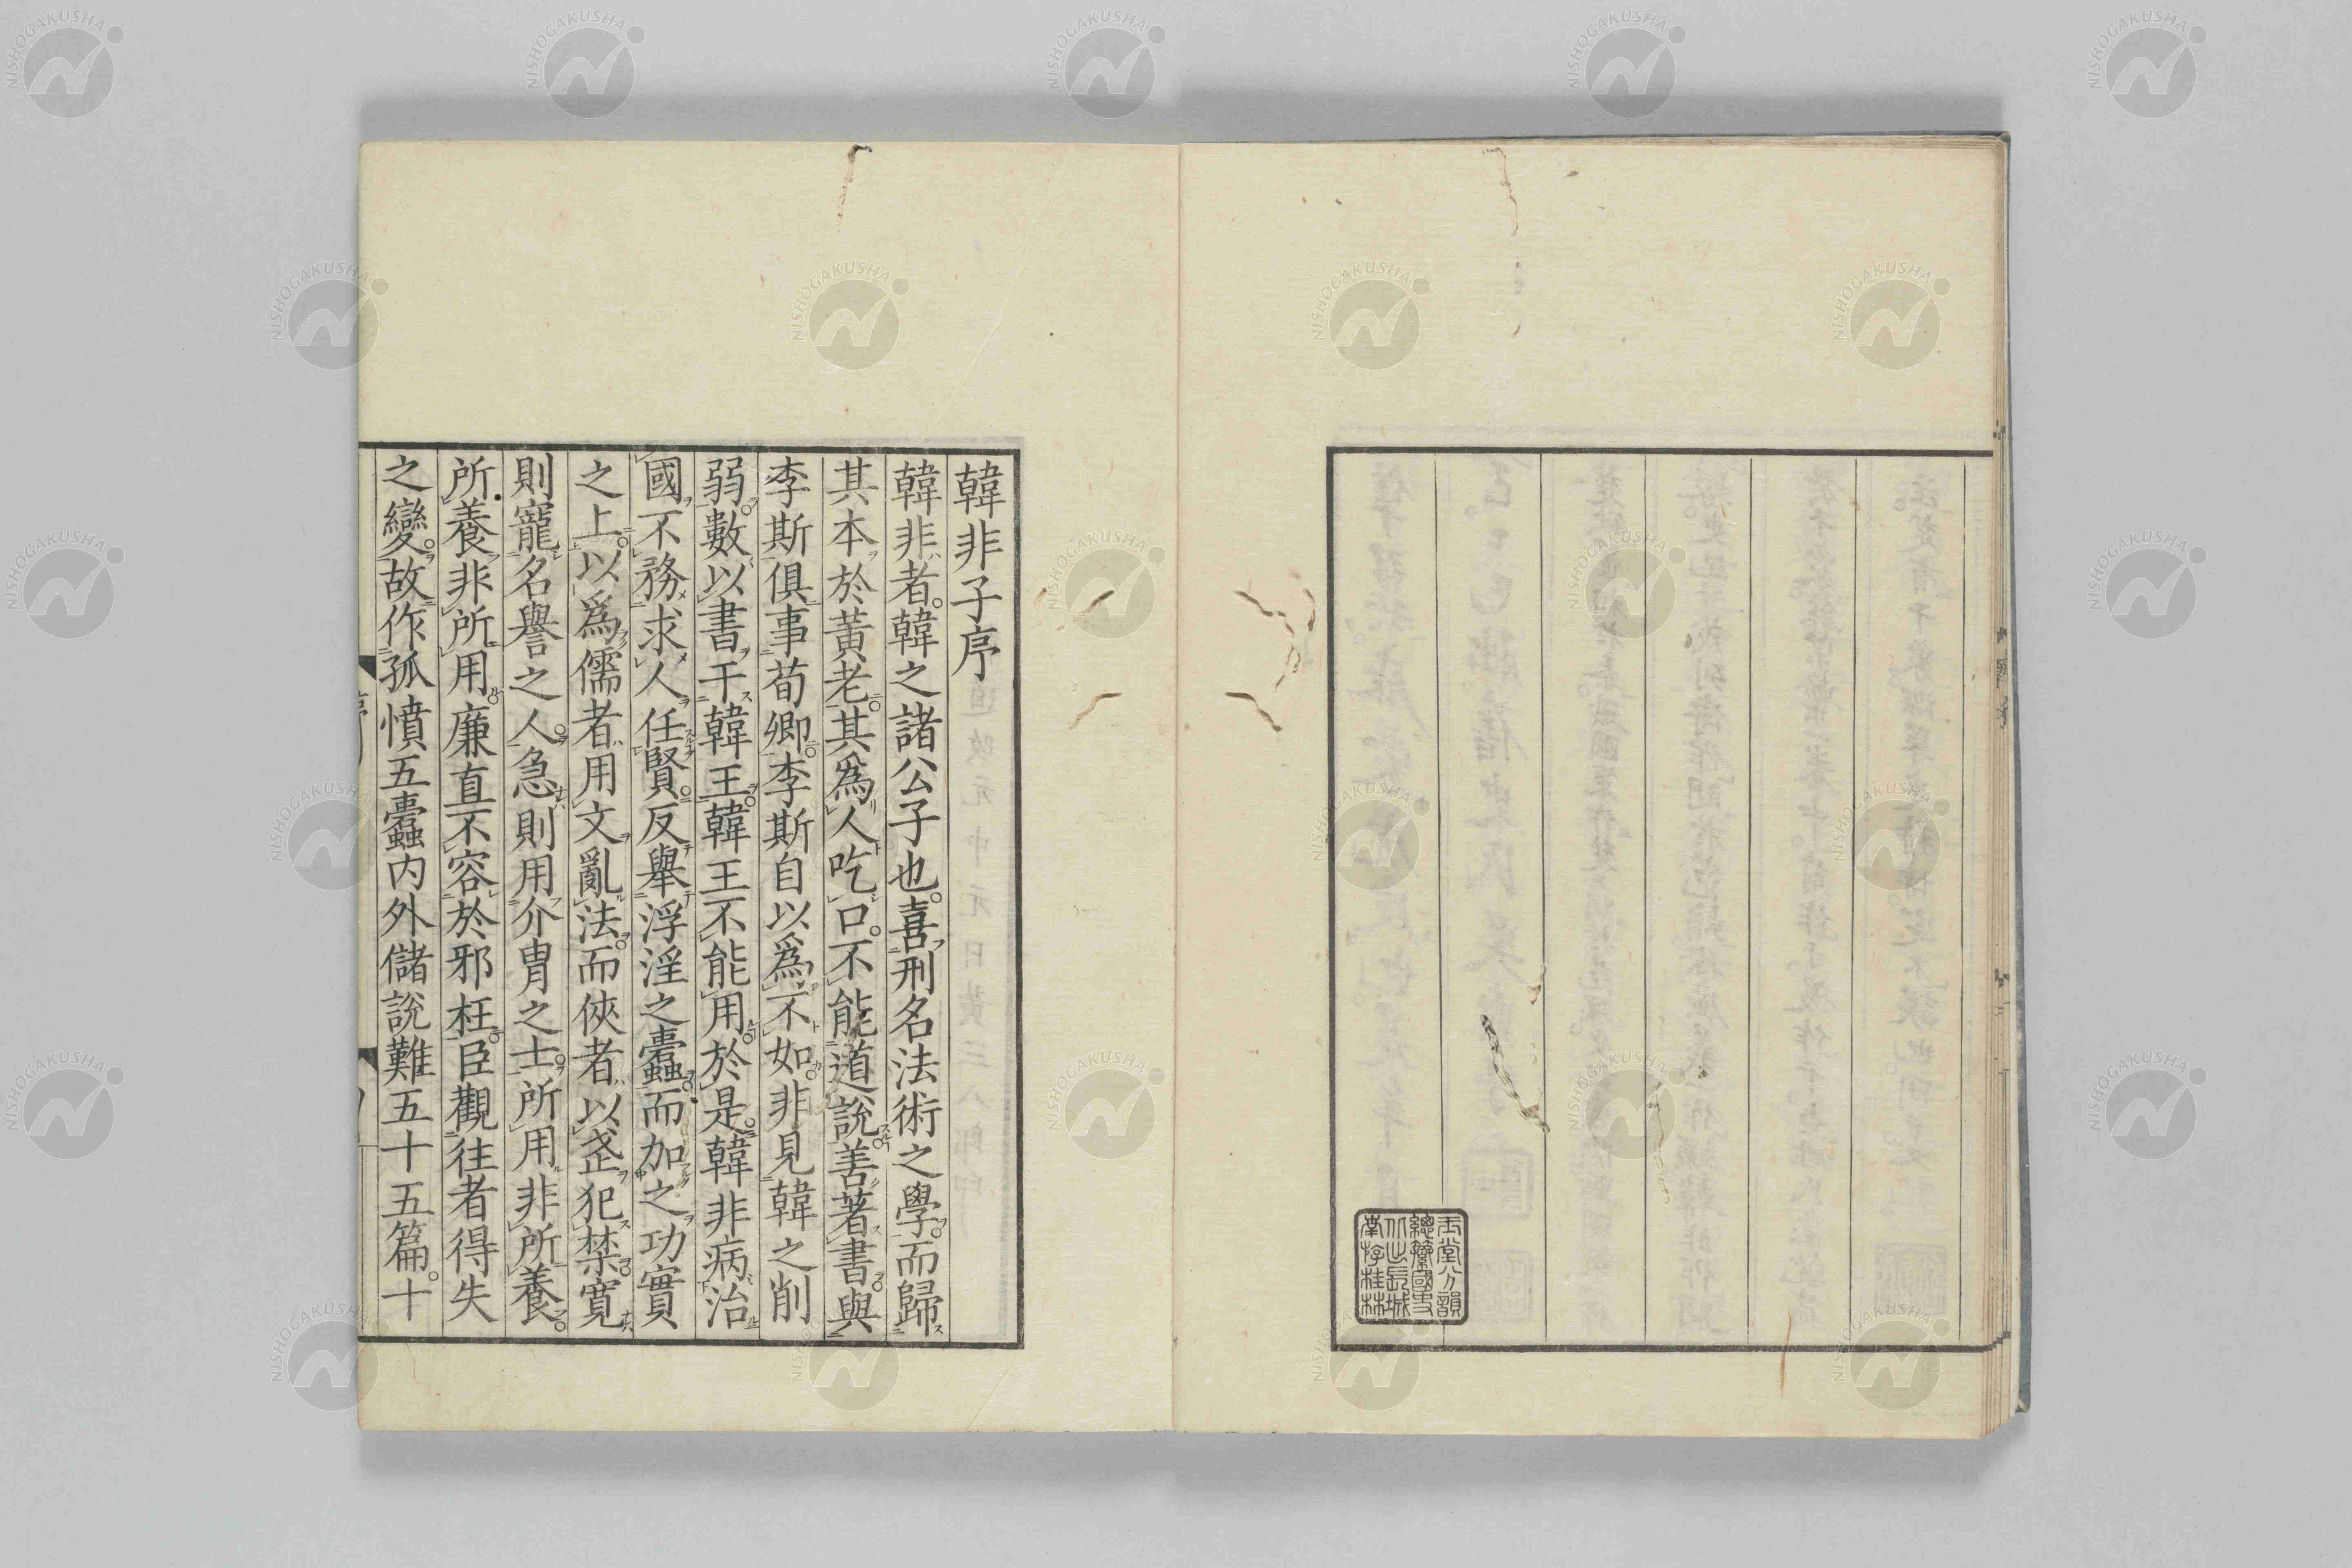 玉堂分韻
總纂國史
南存桂林
韓非子序
韓非者。韓之諸公子也。喜刑名法術之學。而歸
其本於黃老。其爲人吃口。不能道說。善著書。與
李斯俱事荀卿。李斯自以爲不如。非見韓之削
弱。數以書干韓王。韓王不能用。於是韓非病治
國不務求人任賢。反舉浮淫之蠹。而加之功實
之上。以爲儒者用文亂法。而俠者以武犯禁。寬
則寵名譽之人。急則用介冑之士。所用非所養。
所養非所用。廉直不容於邪枉臣。觀往者得失
之變。故作孤憤五蠹內外儲說難五十五篇。十
NISHOGAKUSHA